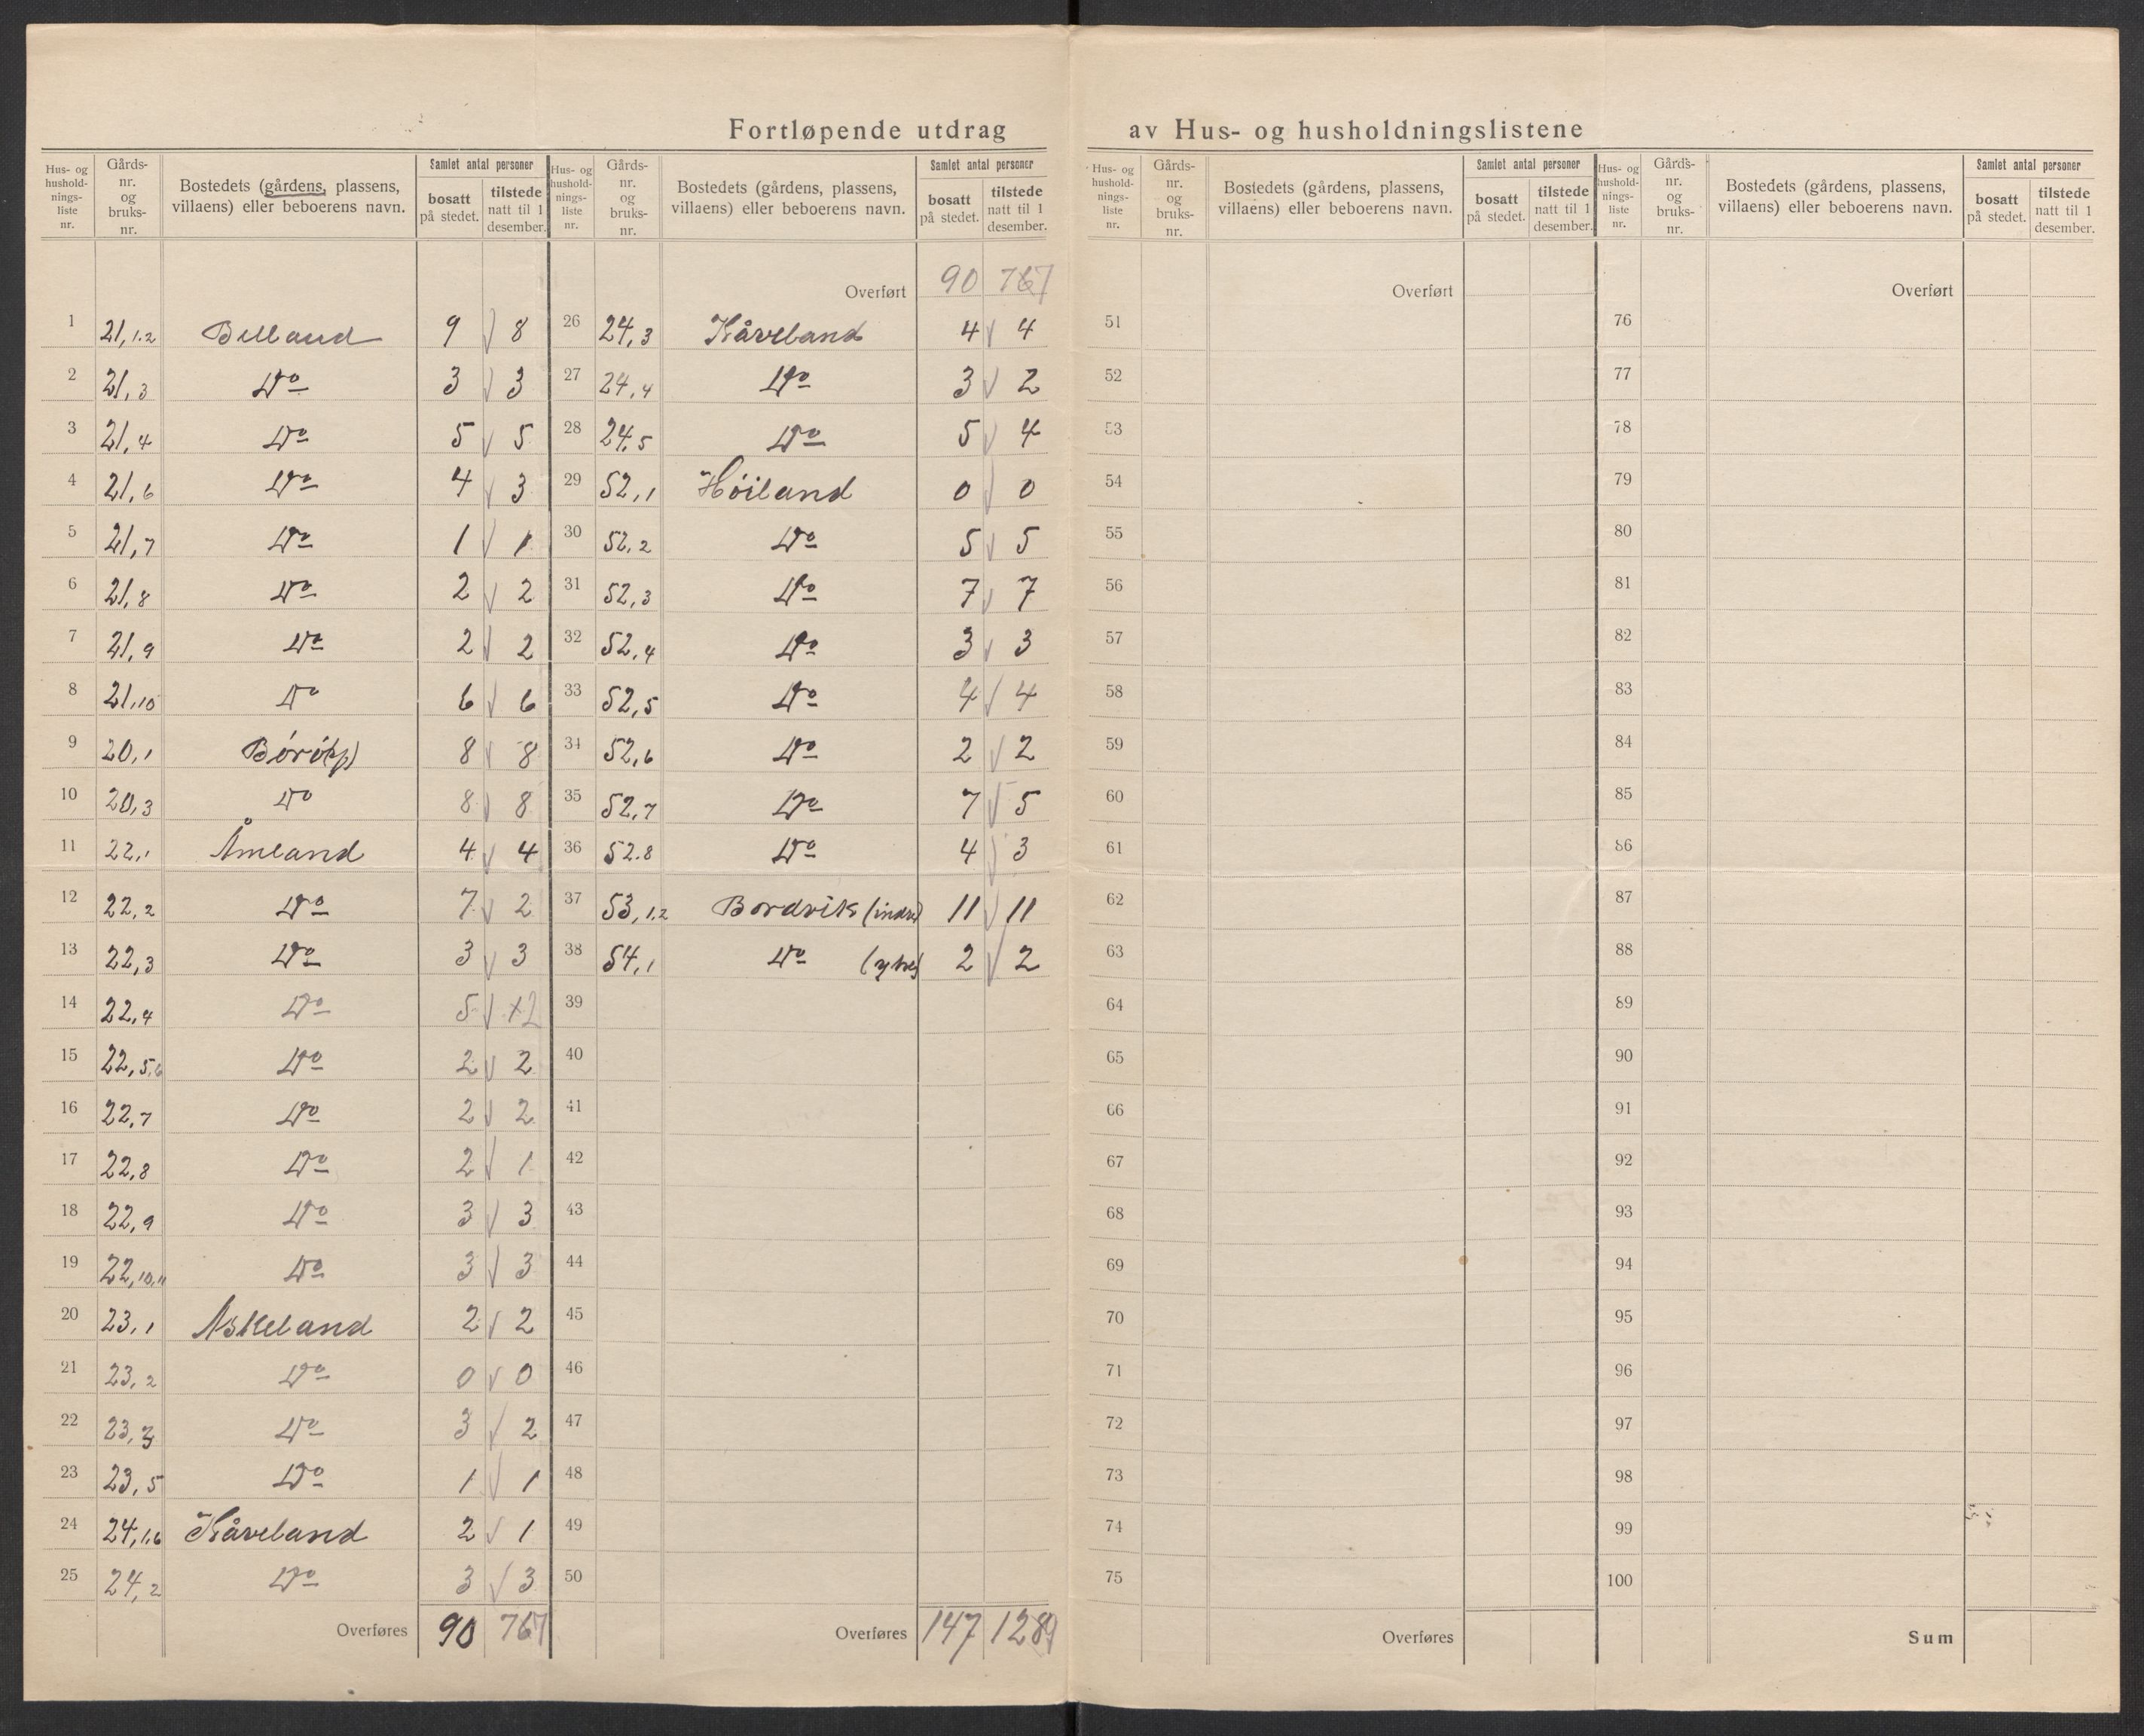 Fortløpende utdrag av Hus- og husholdningslistene
Hus- og hushold- nings- liste nr. | Gårds- nr. og bruks- nr. | Bostedets (gårdens, plassens, villaens) eller beboerens navn. | Samlet antal personer | bosatt på stedet. | tilstede natt til 1 desember.
1 21,1.2 Billand 9 8
2 21,3 Do 3 3
3 21,4 Do 5 5
4 21,6 Do 4 3
5 21,7 Do 1 1
6 21,8 Do 2 2
7 21,9 Do 2 2
8 21,10 Do 6 6
9 20,1 8 8
10 20,3 Do 8 8
11 22,1 Åmland 4 4
12 22,2 Do 7 2
13 22,3 Do 3 3
14 22,4 Do 5 2
15 22,5.6 Do 2 2
16 22,7 Do 2 2
17 22,8 Do 2 1
18 22,9 Do 3 3
19 22,10,11 Do 3 3
20 23,1 Askeland 2 2
21 23,2 Do 0 0
22 23,3 Do 3 2
23 23,5 Do 1 1
24 24,1.6 Kåveland 2 1
25 24,2 Do 3 3
Overføres 90
Hus- og hushold- nings- liste nr. | Gårds- nr. og bruks- nr. | Bostedets (gårdens, plassens, villaens) eller beboerens navn. | Samlet antal personer | bosatt på stedet. | tilstede natt til 1 desember.
Overført 90
26 24,3 Kåveland 4 4
27 24,4 Do 3 2
28 24,5 Do 5 4
29 52,1 Høiland 0 0
30 52,2 Do 5 5
31 52,3 Do 7 7
32 52,4 Do 3 3
33 52,5 Do 4 4
34 52,6 Do 2 2
35 52,7 Do 7 5
36 52.8 Do 4 3
37 53,1.2 Bordvik (indre) 11 11
38 54,1 Do (ytre) 2 2
39
40
41
42
43
44
45
46
47
48
49
50
Overføres 147
Hus- og hushold- nings- liste nr. | Gårds- nr. og bruks- nr. | Bostedets (gårdens, plassens, villaens) eller beboerens navn. | Samlet antal personer | bosatt på stedet. | tilstede natt til 1 desember.
Overført
51
52
53
54
55
56
57
58
59
60
61
62
63
64
65
66
67
68
69
70
71
72
73
74
75
Overføres
Hus- og hushold- nings- liste nr. | Gårds- nr. og bruks- nr. | Bostedets (gårdens, plassens, villaens) eller beboerens navn. | Samlet antal personer | bosatt på stedet. | tilstede natt til 1 desember.
Overført
76
77
78
79
80
81
82
83
84
85
86
87
88
89
90
91
92
93
94
95
96
97
98
99
100
Sum